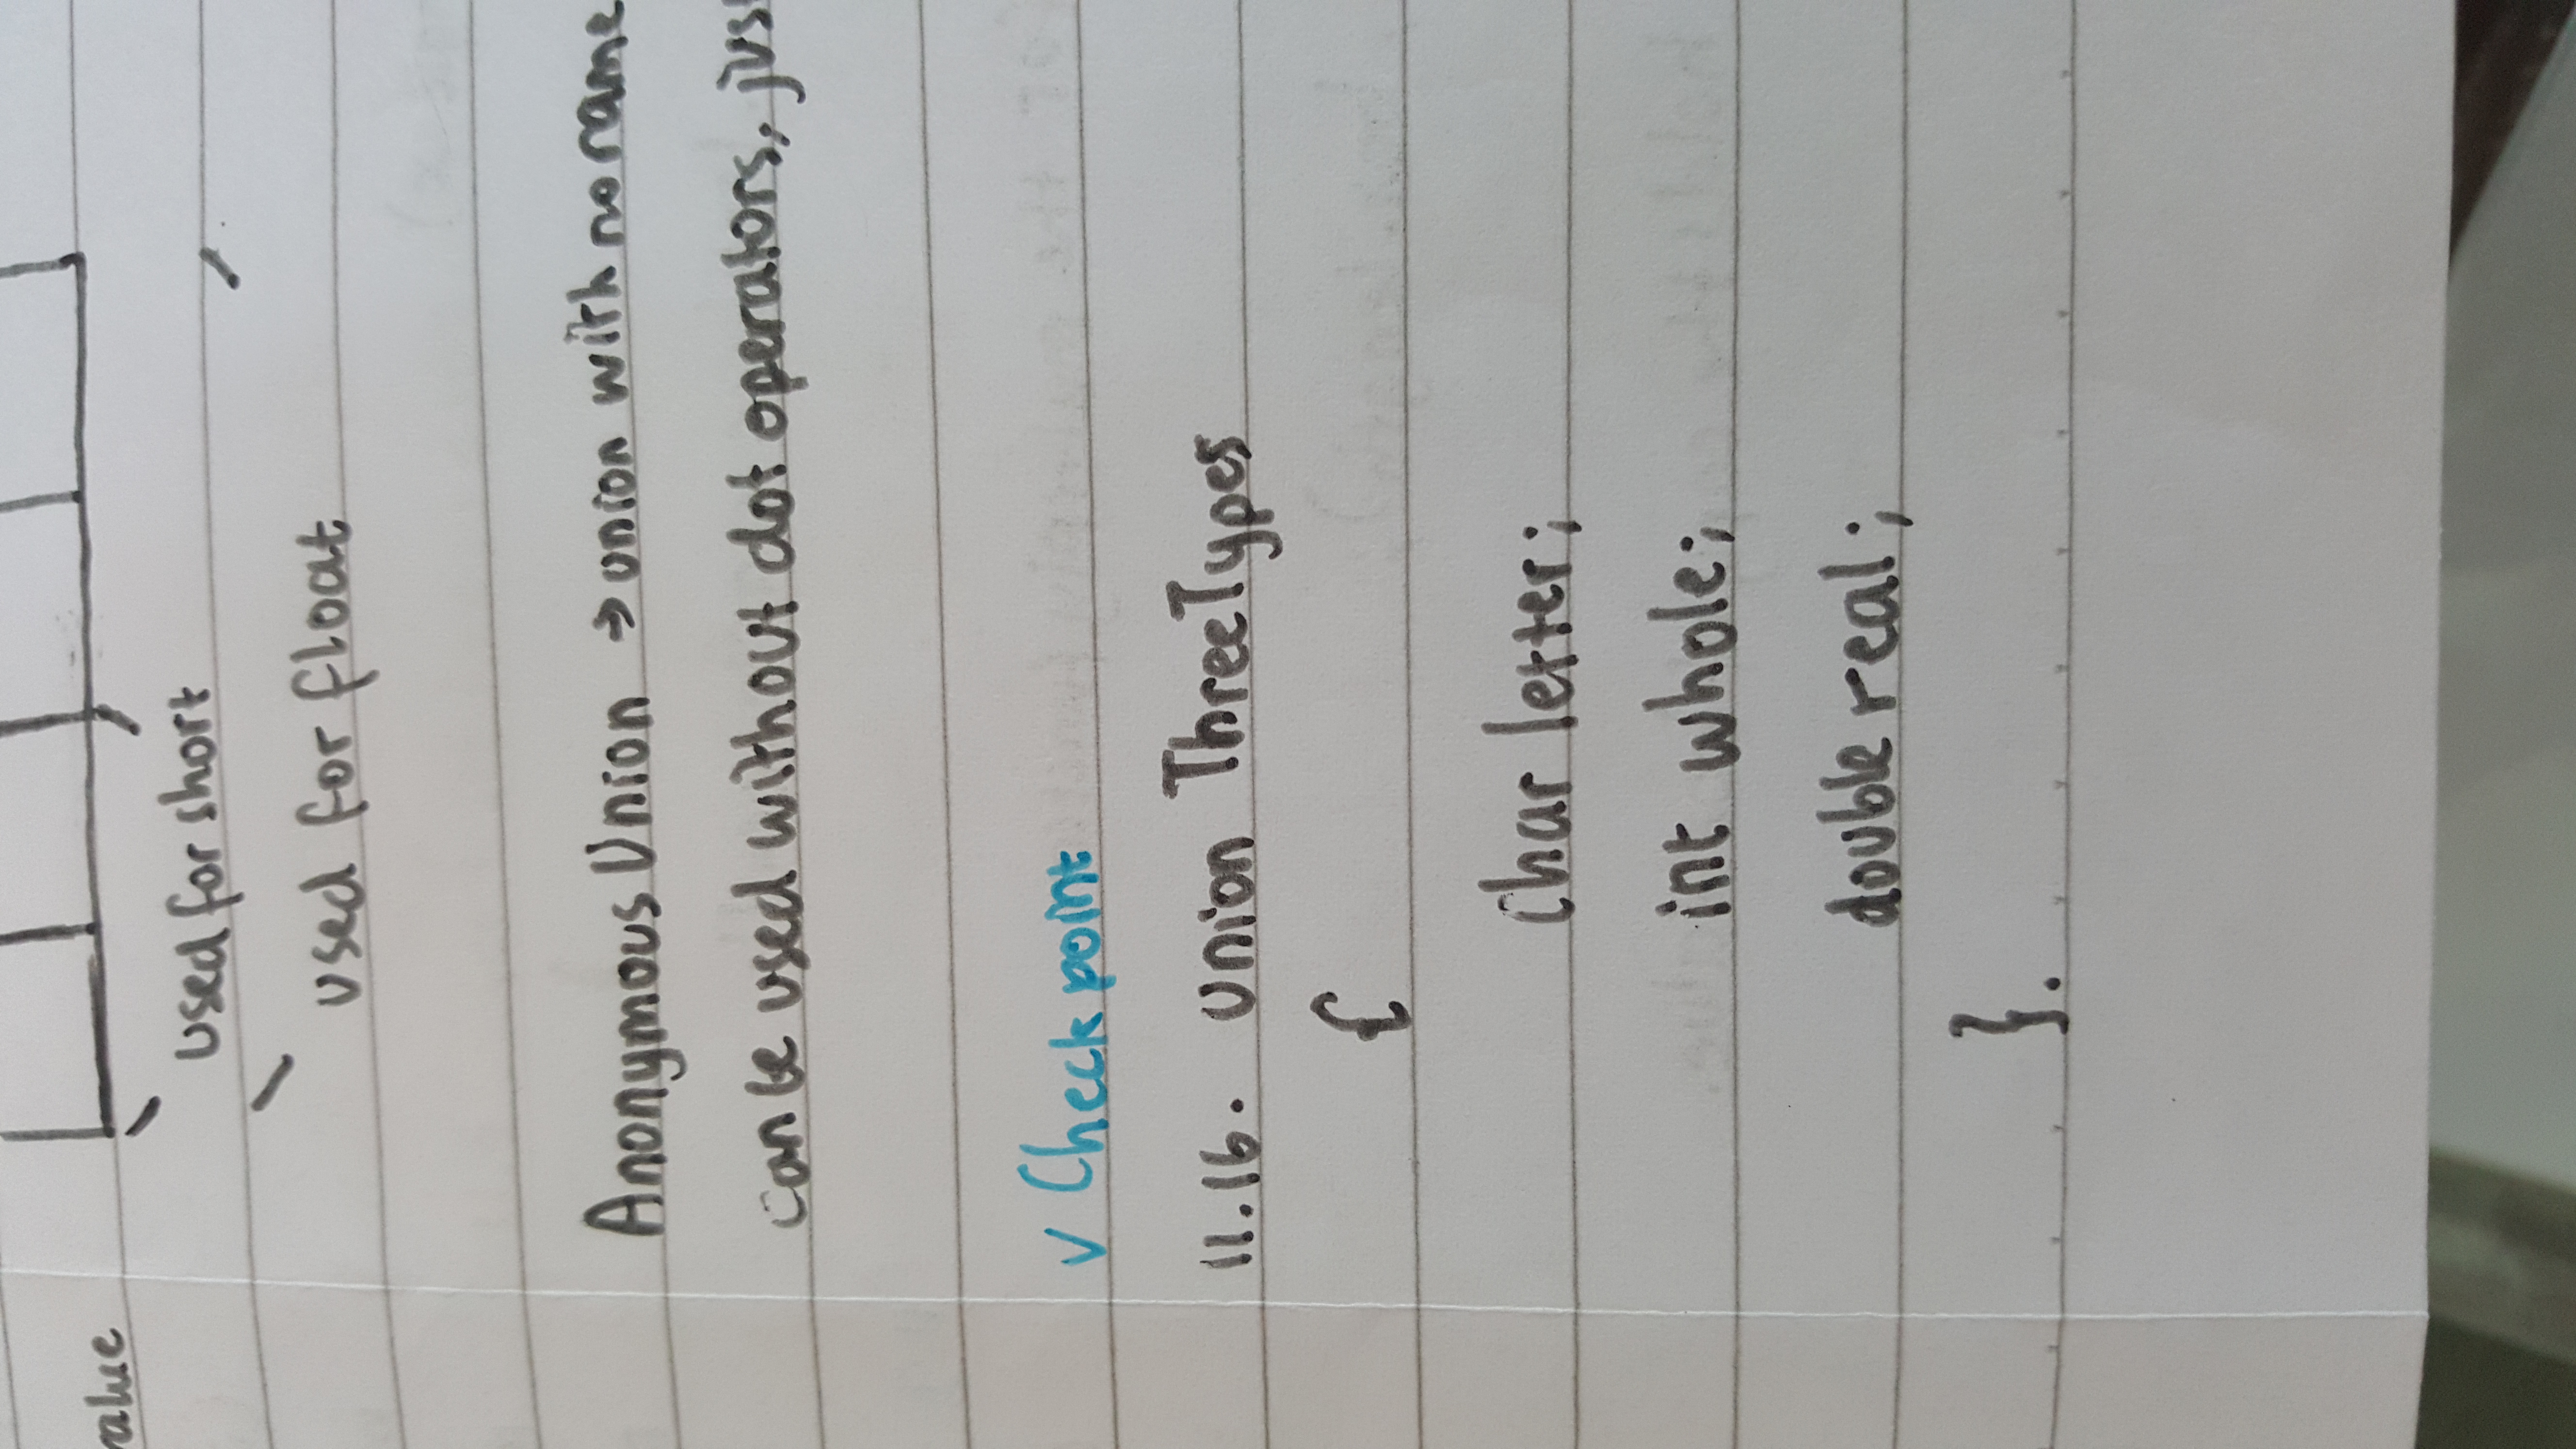 value
used for short
used for float
Anonymous Union → union with no name
can be used without dot operators, jus
v Checkpoint
11.16. union ThreeTypes
{
char letter;
int whole;
double real;
}.